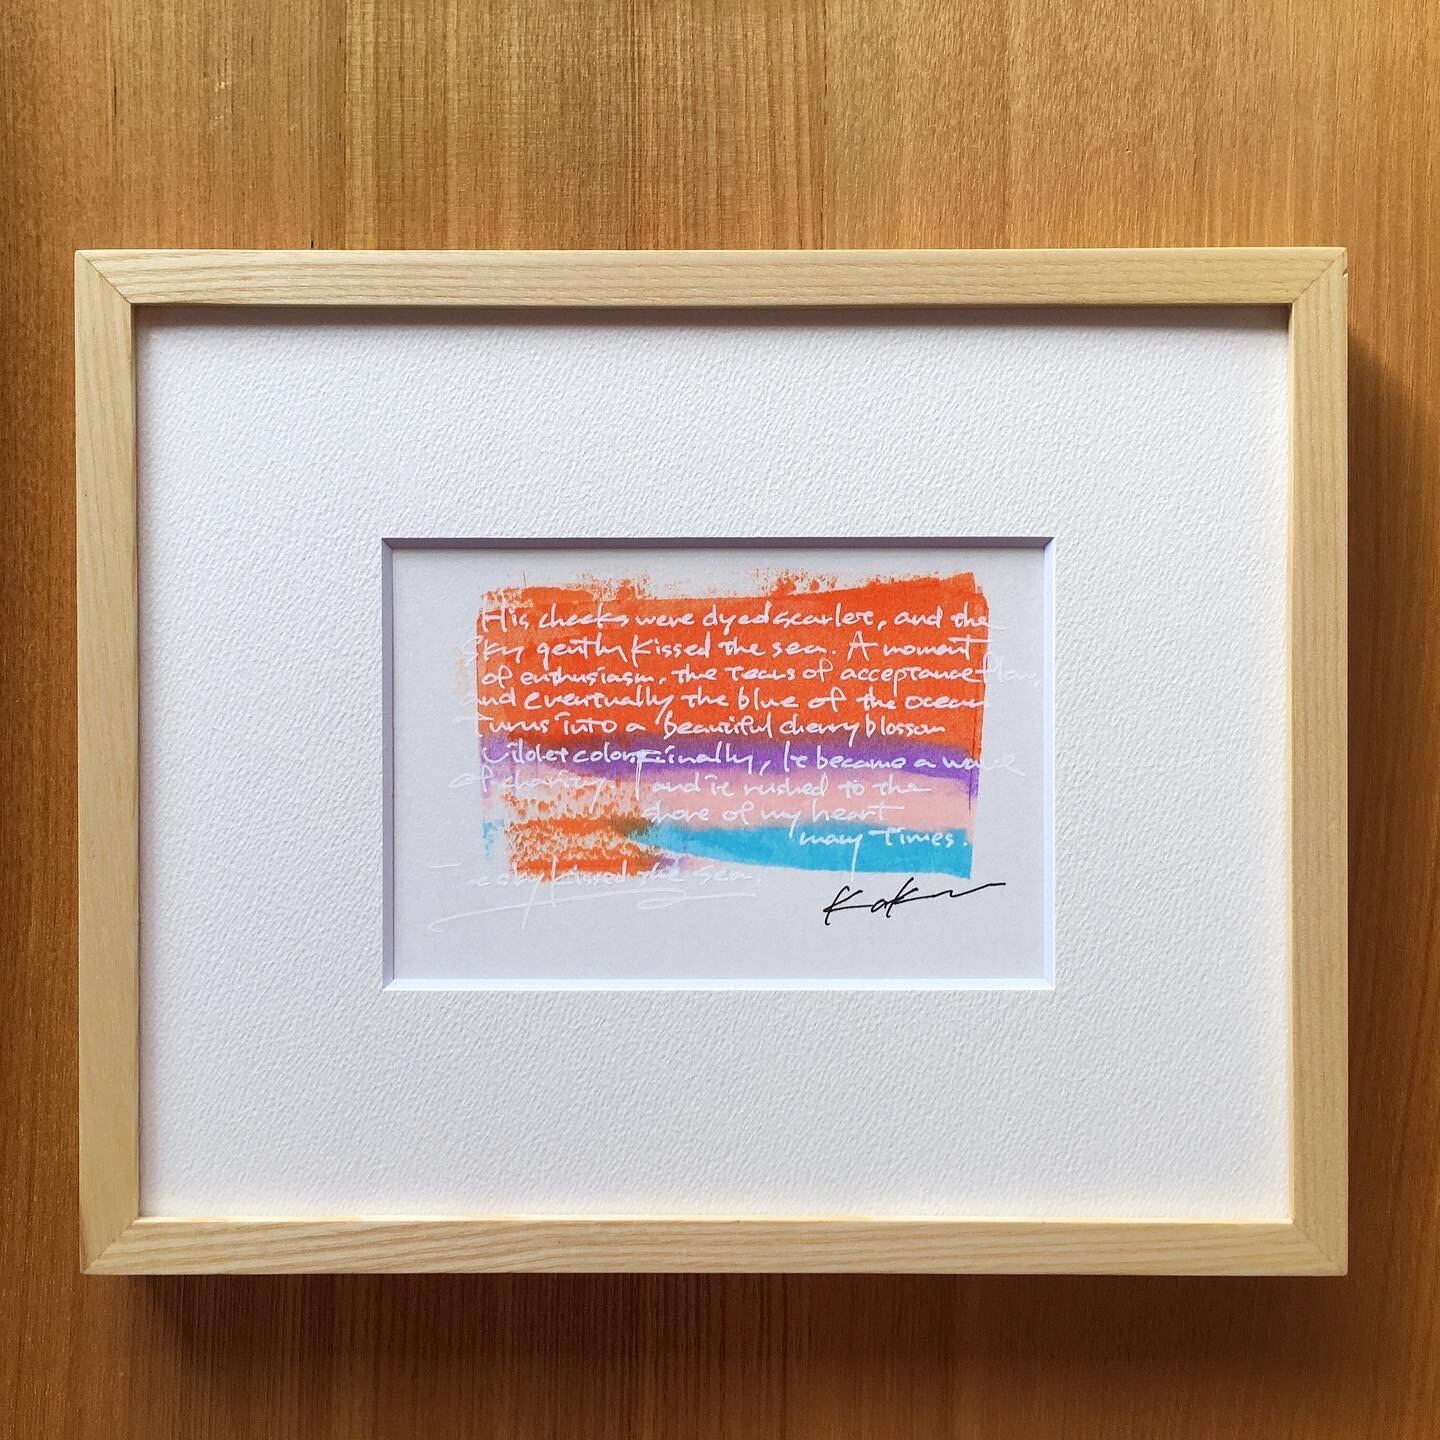 His cheeks were dyed scarlet, and the
sky gently kissed the sea. A moment
of enthusiasm, the tears of acceptance flow,
and eventually the blue of the ocean
turns into a beautiful cherry blossom
vilolet color. Finally, It became a wave
of charity, and it rushed to the
shore of my heart
many times.
The sky kissed the sea.
Kaku